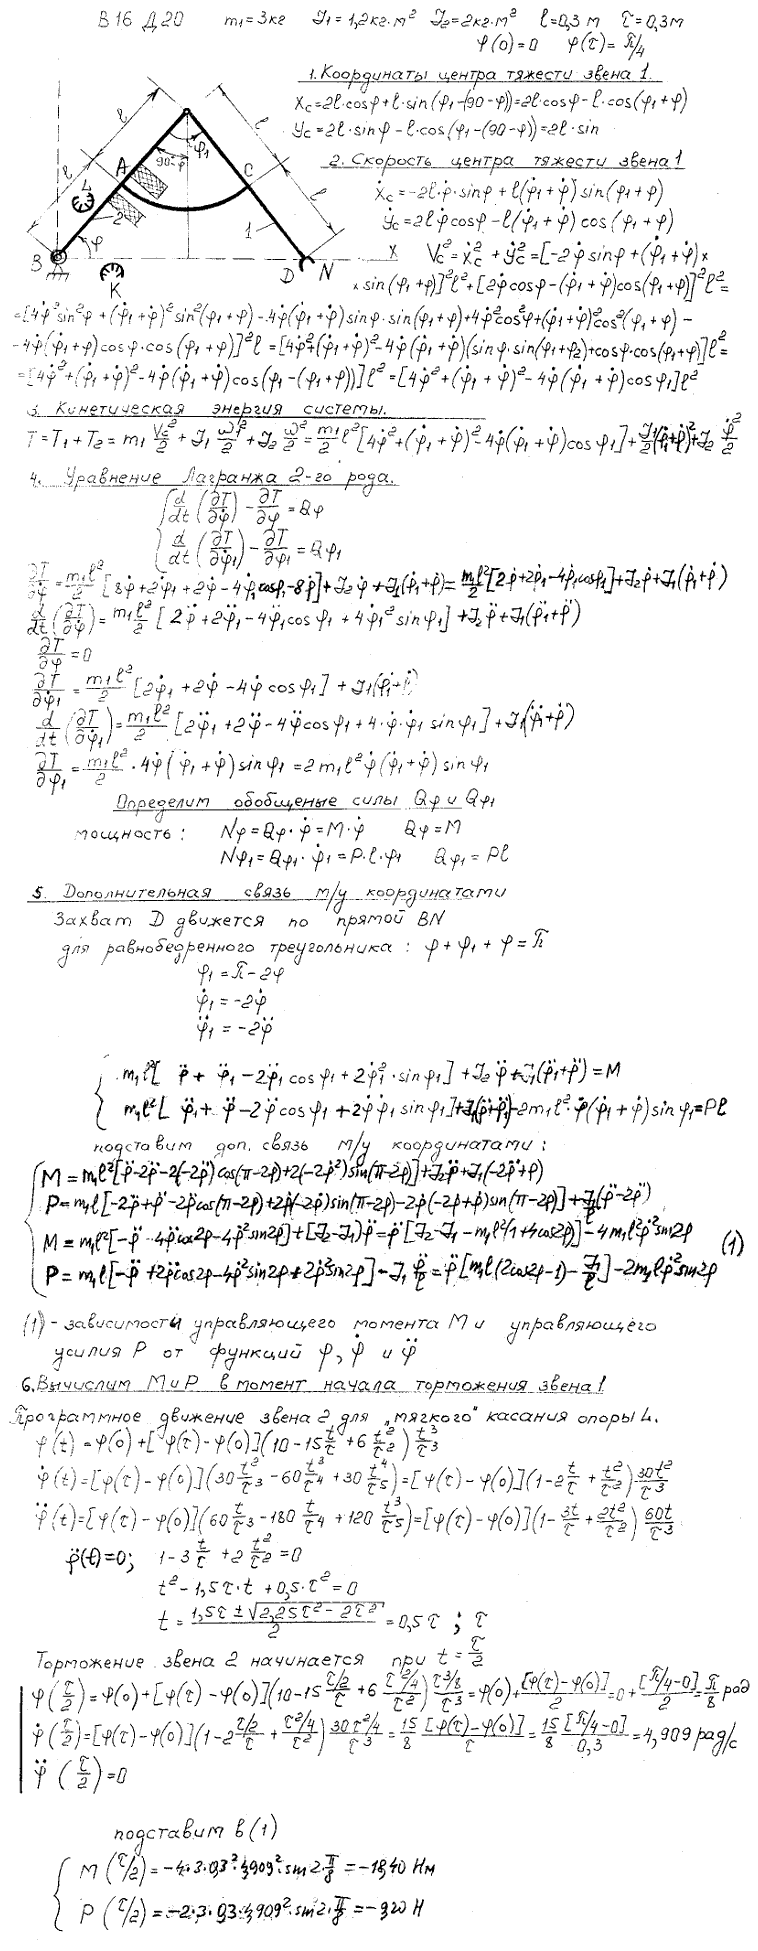 В 16 Д 20   m₁=3кг   J₁=1,2кг·м²   J₂=2кг·м²   l=0,3 м   τ=0,3м
φ(0)=0   φ(τ)=π/4
1. Координаты центра тяжести звена 1.
Xc=2l·cosφ+l·sin(φ₁-(90-φ))=2l·cosφ-l·cos(φ₁+φ)
Yc=2l·sinφ-l·cos(φ₁-(90-φ))=2l·sin
2. Скорость центра тяжести звена 1
ẋc=-2l·φ̇·sinφ+l(φ̇₁+φ̇)sin(φ₁+φ)
ẏc=2lφ̇cosφ-l(φ̇₁+φ̇)cos(φ₁+φ)
l l l l A C 90-φ φ₁ L 2 φ 1 B K D N x
Vc²=ẋc²+ẏc²=[-2φ̇sinφ+(φ̇₁+φ̇)×
×sin(φ₁+φ)]²l²+[2φ̇cosφ-(φ̇₁+φ̇)cos(φ₁+φ)]²l²=
=[4φ̇²sin²φ+(φ̇₁+φ̇)²sin²(φ₁+φ)-4φ̇(φ̇₁+φ̇)sinφ·sin(φ₁+φ)+4φ̇²cos²φ+(φ̇₁+φ̇)²cos²(φ₁+φ)-
-4φ̇(φ̇₁+φ)cosφ·cos(φ₁+φ)]²l=[4φ̇²+(φ̇₁+φ̇)²-4φ̇(φ̇₁+φ̇)(sinφ·sin(φ₁+φ₂)+cosφ·cos(φ₁+φ)]l²=
=[4φ̇²+(φ̇₁+φ̇)²-4φ̇(φ̇₁+φ̇)cos(φ₁-(φ₁+φ))]l²=[4φ̇²+(φ̇₁+φ̇)²-4φ̇(φ̇₁+φ̇)cosφ₁]l²
3. Кинетическая энергия системы.
T=T₁+T₂=m₁Vc²/2+J₁ω₁²/2+J₂ω²/2=m₁/2 l²[4φ̇²+(φ̇₁+φ̇)²-4φ̇(φ̇₁+φ̇)cosφ₁]+J₁/2(φ̇₁+φ̇)²+J₂φ̇²/2
4. Уравнение Лагранжа 2-го рода.
d/dt(∂T/∂φ̇)-∂T/∂φ=Qφ
d/dt(∂T/∂φ̇₁)-∂T/∂φ₁=Qφ₁
∂T/∂φ̇=m₁l²/2[8φ̇+2φ̇₁+2φ̇-4φ̇₁cosφ₁-8φ̇]+J₂φ̇+J₁(φ̇₁+φ̇)=m₁l²/2[2φ̇+2φ̇₁-4φ̇₁cosφ₁]+J₂φ̇+J₁(φ̇₁+φ̇)
d/dt(∂T/∂φ̇)=m₁l²/2[2φ̈+2φ̈₁-4φ̈₁cosφ₁+4φ̇₁²sinφ₁]+J₂φ̈+J₁(φ̈₁+φ̈)
∂T/∂φ=0
∂T/∂φ̇₁=m₁l²/2[2φ̇₁+2φ̇-4φ̇cosφ₁]+J₁(φ̇₁+φ̇)
d/dt(∂T/∂φ̇₁)=m₁l²/2[2φ̈₁+2φ̈-4φ̈cosφ₁+4·φ̇·φ̇₁sinφ₁]+J₁(φ̈₁+φ̈)
∂T/∂φ₁=m₁l²/2·4φ̇(φ̇₁+φ̇)sinφ₁=2m₁l²φ̇(φ̇₁+φ̇)sinφ₁
Определим обобщеные силы Qφ и Qφ₁
мощность: Nφ=Qφ·φ̇=M·φ̇   Qφ=M
Nφ₁=Qφ₁·φ̇₁=P·l·φ₁   Qφ₁=Pl
5. Дополнительная связь м/у координатами
Захват D движется по прямой BN
для равнобедренного треугольника: φ+φ₁+φ=π
φ₁=π-2φ
φ̇₁=-2φ̇
φ̈₁=-2φ̈
m₁l²[φ̈+φ̈₁-2φ̈₁cosφ₁+2φ̇₁²·sinφ₁]+J₂φ̈+J₁(φ̈₁+φ̈)=M
m₁l²[φ̈₁+φ̈-2φ̈cosφ₁+2φ̇φ̇₁sinφ₁]+J₁(φ̈+φ̈₁)-2m₁l²·φ̇(φ̇₁+φ̇)sinφ₁=Pl
подставим доп. связь м/у координатами:
M=m₁l²[φ̈-2φ̈-2(-2φ̈)cos(π-2φ)+2(-2φ̇²)sin(π-2φ)]+J₂φ̈+J₁(-2φ̈+φ)
P=m₁l[-2φ̈+φ̈-2φ̈cos(π-2φ)+2φ̇(-2φ̇)sin(π-2φ)-2φ̇(-2φ̇+φ̇)sin(π-2φ)]+J₁/l(φ̈-2φ̈)
M=m₁l²[-φ̈-4φ̈cos2φ-4φ̇²sin2φ]+[J₂-J₁)φ̈=φ̈[J₂-J₁-m₁l²(1+4cos2φ)]-4m₁l²φ̇²sin2φ
(1)
P=m₁l[-φ̈+2φ̈cos2φ-4φ̇²sin2φ+2φ̇²sin2φ]-J₁φ̈/l=φ̈[m₁l(2cos2φ-1)-J₁/l]-2m₁lφ̇²sin2φ
(1)-зависимости управляющего момента M и управляющего
усилия P от функций φ, φ̇ и φ̈
6. Вычислим M и P в момент начала торможения звена 1
Программное движение звена 2 для "мягкого" касания опоры L.
φ(t)=φ(0)+[φ(τ)-φ(0)](10-15t/τ+6t²/τ²)t³/τ³
φ̇(t)=[φ(τ)-φ(0)](30t²/τ³-60t³/τ⁴+30t⁴/τ⁵)=[φ(τ)-φ(0)](1-2t/τ+t²/τ²)30t²/τ³
φ̈(t)=[φ(τ)-φ(0)](60t/τ³-180t/τ⁴+120t³/τ⁵)=[φ(τ)-φ(0)](1-3t/τ+2t²/τ²)60t/τ³
φ̈(t)=0; 1-3t/τ+2t²/τ²=0
t²-1,5τ·t+0,5·τ²=0
t=(1,5τ±√(2,25τ²-2τ²))/2=0,5τ; τ
Торможение звена 2 начинается при t=τ/2
φ(τ/2)=φ(0)+[φ(τ)-φ(0)](10-15(τ/2)/τ+6(τ²/4)/τ²)(τ³/8)/τ³=φ(0)+[φ(τ)-φ(0)]/2=0+[π/4-0]/2=π/8 рад
φ̇(τ/2)=[φ(τ)-φ(0)](1-2(τ/2)/τ+(τ²/4)/τ²)(30τ²/4)/τ³=15/8 [φ(τ)-φ(0)]/τ=15/8 [π/4-0]/0,3=4,909 рад/с
φ̈(τ/2)=0
подставим в (1)
M(τ/2)=-4·3·0,3²·4,909²·sin2·π/8=-18,40 Нм
P(τ/2)=-2·3·0,3·4,909²·sin2·π/8=-9,20 Н